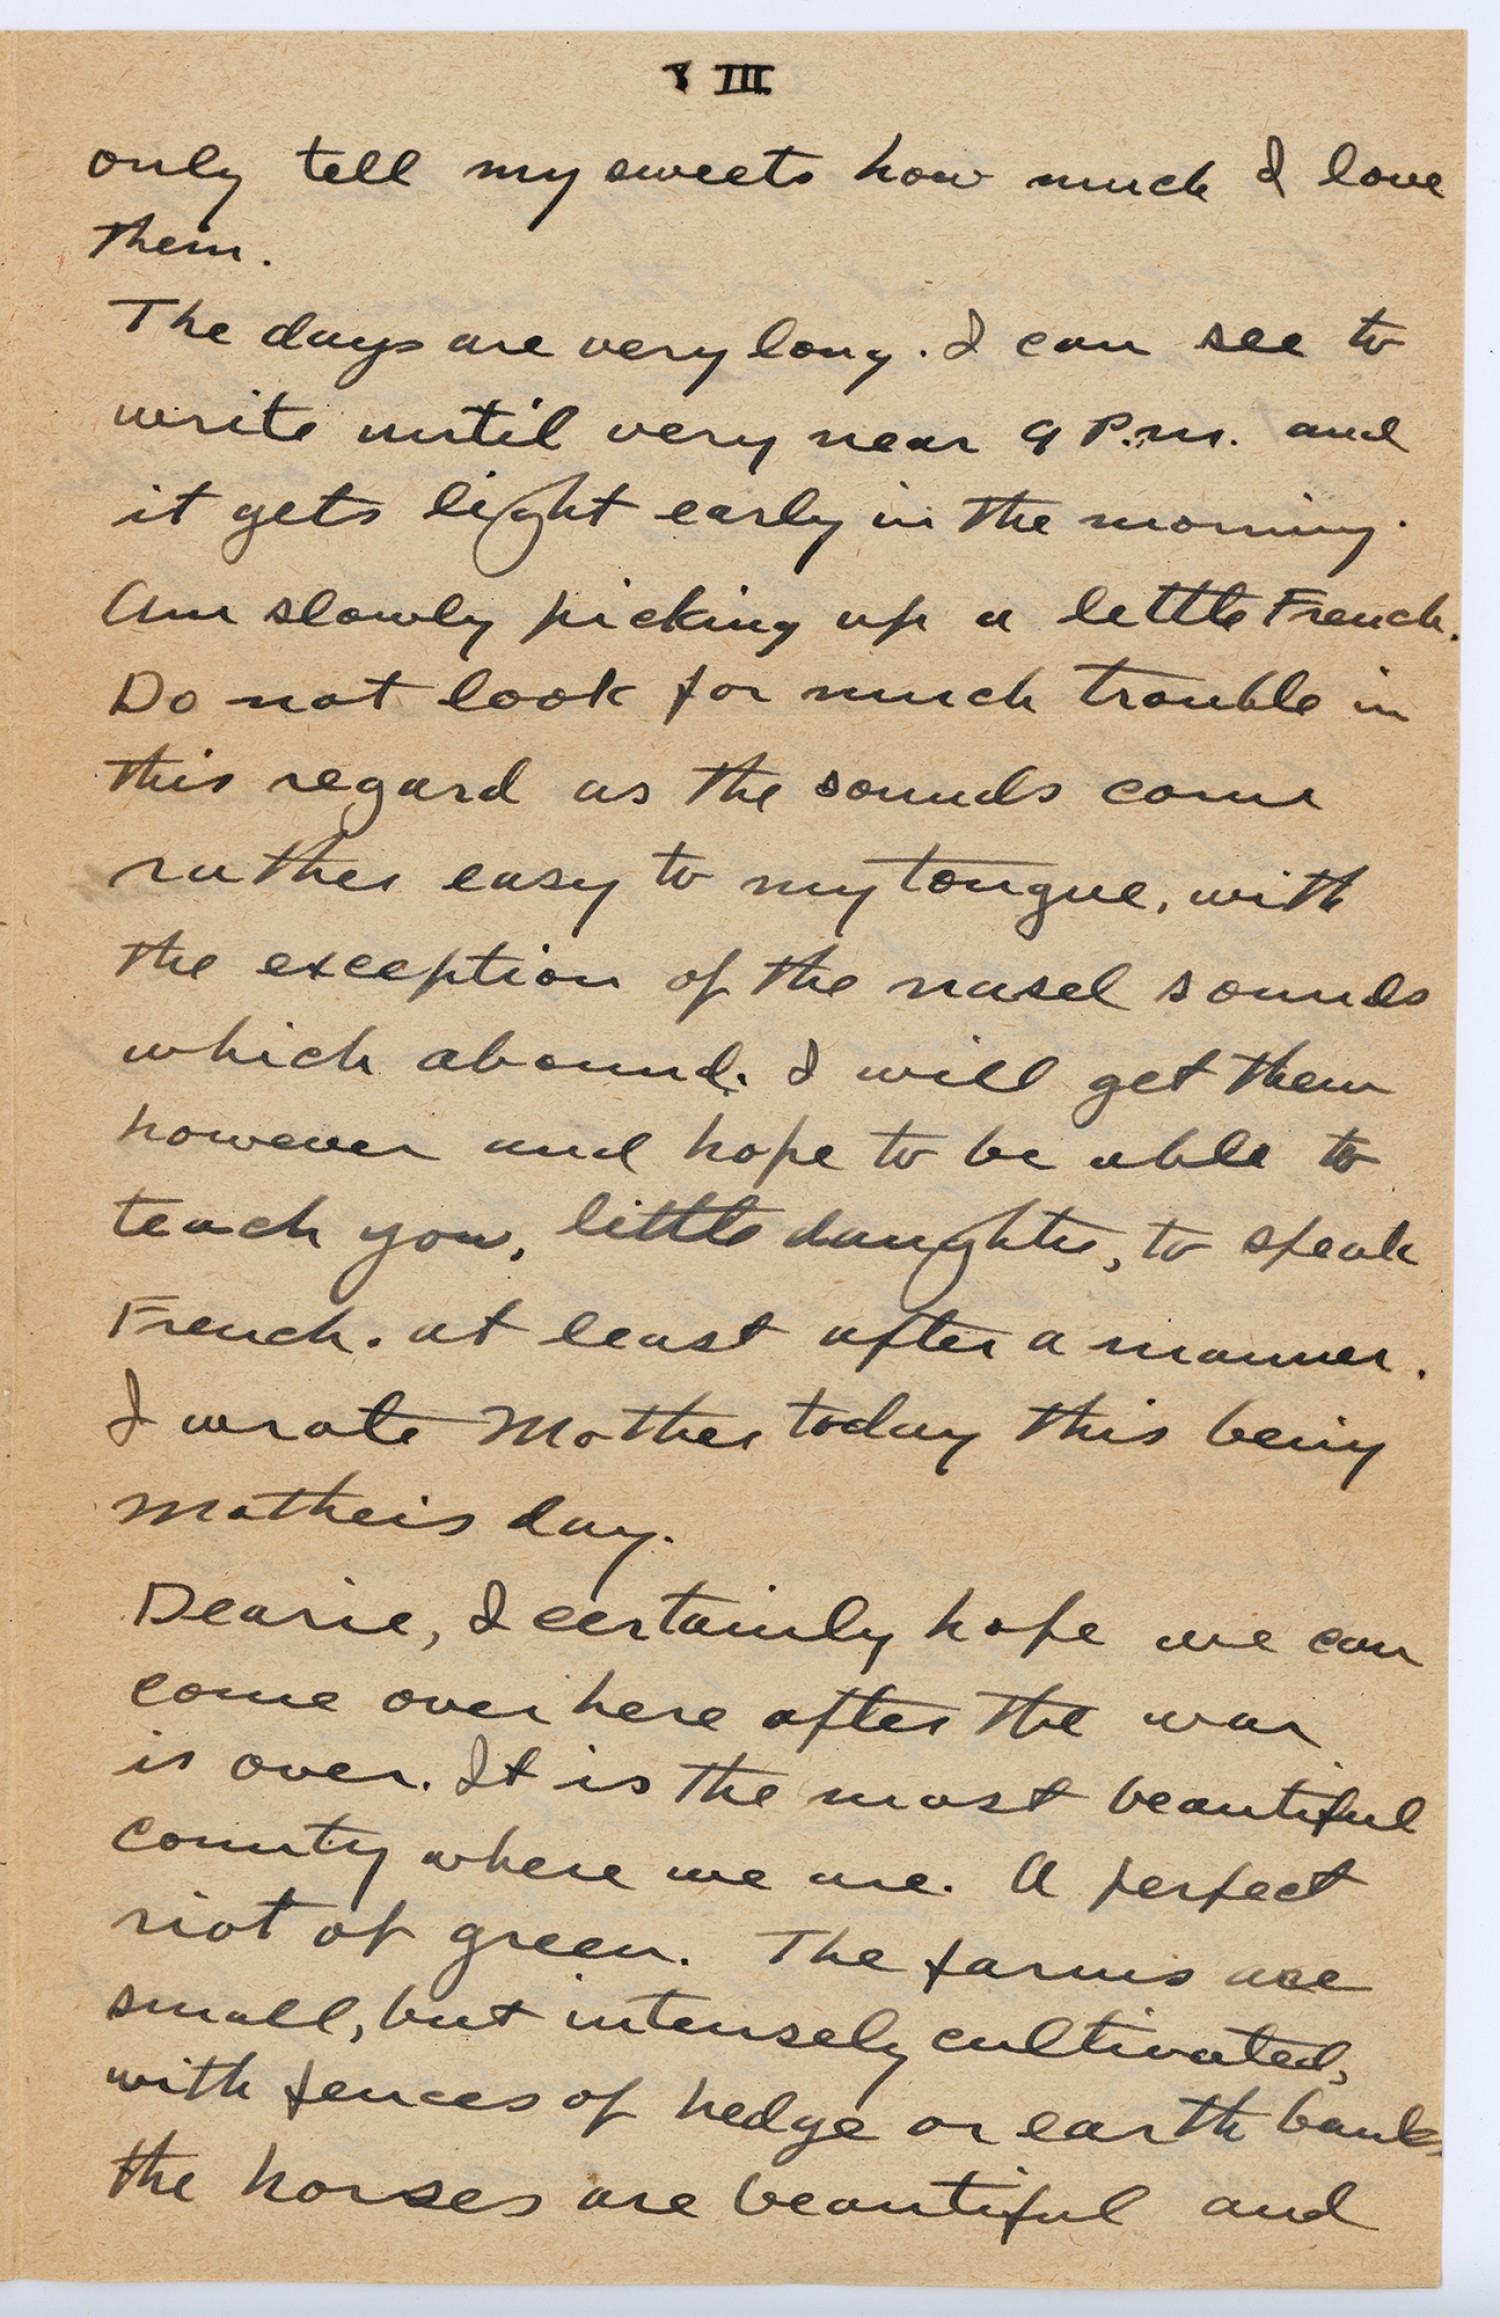 III
only tell my sweets how much I love
them.
The days are very long. I can see to
write until very near 9 P.m. and
it gets light early in the morning.
Am slowly picking up a little French.
Do not look for much trouble in
this regard as the sounds come
rather easy to my tongue, with
the exception of the nasel sounds
which abound. I will get them
however and hope to be able to
teach you, little daughter, to speak
French. at least after a manner.
I wrote Mother today this being
Mother's day.
Dearie, I certainly hope we can
come over here after the war
is over. It is the most beautiful
county where we are. A perfect
riot of green. The farms are
small, but intensely cultivated,
with fences of hedge or earth banks
the horses are beautiful and